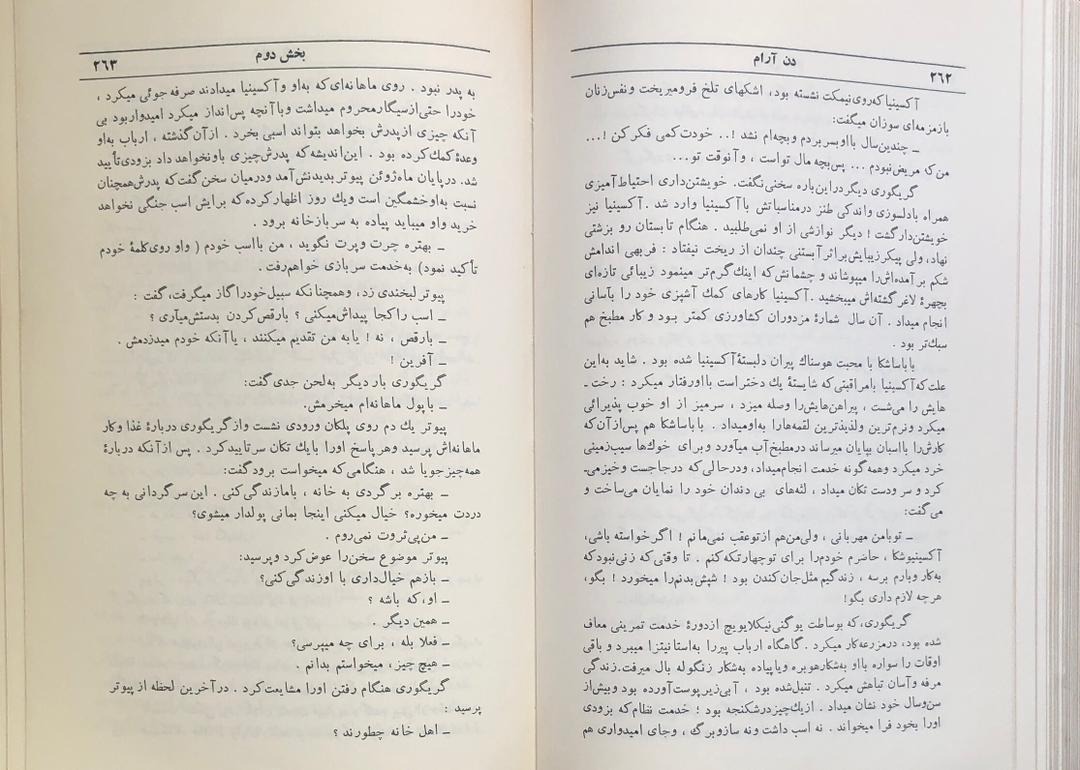 دن آرام
۲۶۲
آکسینیا که روی نیمکت نشسته بود، اشکهای تلخ فرومیریخت و نفس‌زنان
بازمزمه‌ای سوزان میگفت:
ـ چندین سال با او بسر بردم و بچه‌ام نشد !.. خودت کمی فکر کن !...
من که مریض نبودم ... پس بچه مال تو است ، و آنوقت تو...
گریگوری دیگر در این باره سخنی نگفت. خویشتن‌داری احتیاط آمیزی
همراه با دلسوزی و اندکی طنز در مناسباتش با آکسینیا وارد شد . آکسینیا نیز
خویشتن‌دار گشت ! دیگر نوازشی از او نمی‌طلبید . هنگام تابستان رو بزشتی
نهاد، ولی پیکر زیبایش بر اثر آبستنی چندان از ریخت نیفتاد : فربهی اندامش
شکم بر آمده‌اش را میپوشاند و چشمانش که اینك گرم‌تر مینمود زیبائی تازه‌ای
بچهرهٔ لاغر گشته‌اش میبخشید . آکسینیا کارهای کمك آشپزی خود را بآسانی
انجام میداد . آن سال شمارهٔ مزدوران کشاورزی کمتر بود و کار مطبخ هم
سبك‌تر بود .
باباساشکا با محبت هوسناك پیران دلبستهٔ آکسینیا شده بود . شاید به‌این
علت که آکسینیا با مراقبتی که شایستهٔ یك دختر است با او رفتار میکرد : رخت ـ
هایش را می‌شست ، پیراهن‌هایش را وصله میزد ، سر میز از او خوب پذیرائی
میکرد و نرم‌ترین و لذیذترین لقمه‌ها را به‌او میداد . باباساشکا هم پس از آن که
کارش را با اسبان بپایان میرساند در مطبخ آب میآورد و برای خوك‌ها سیب‌زمینی
خرد میکرد و همه گونه خدمت انجام میداد، و در حالی که در جا جست و خیز میـ
کرد و سر و دست تکان میداد ، لثه‌های بی دندان خود را نمایان می‌ساخت و
می‌گفت:
ـ تو با من مهربانی ، ولی من هم از تو عقب نمی‌مانم ! اگر خواسته باشی،
آکسینیوشکا ، حاضرم خودم را برای تو چهار تکه کنم . تا وقتی که زنی نبود که
به‌کار و بارم برسه ، زندگیم مثل جان کندن بود ! شپش بدنم را میخورد ! بگو،
هر چه لازم داری بگو!
گریگوری، که بوساطت یوگنی نیکلایویچ از دورهٔ خدمت تمرینی معاف
شده بود، در مزرعه کار میکرد . گاهگاه ارباب پیر را به‌استانیتزا میبرد و باقی
اوقات را سواره با او به‌شکار هوبره و یا پیاده به‌شکار زنگوله بال میرفت. زندگی
مرفه و آسان تباهش میکرد . تنبل شده بود ، آبی زیر پوست آورده بود و بیش از
سن و سال خود نشان میداد . از یك چیز در شکنجه بود ؛ خدمت نظام که بزودی
او را بخود فرا میخواند . نه اسب داشت و نه ساز و برگ ، و جای امیدواری هم
بخش دوم
۲۶۳
به پدر نبود . روی ماهانه‌ای که به‌او و آکسینیا میدادند صرفه جوئی میکرد ،
خود را حتی از سیگار محروم میداشت و با آنچه پس‌انداز میکرد امیدوار بود بی
آنکه چیزی از پدرش بخواهد بتواند اسبی بخرد . از آن گذشته ، ارباب به‌او
وعدهٔ کمك کرده بود . این اندیشه که پدرش چیزی باو نخواهد داد بزودی تأیید
شد. در پایان ماه ژوئن پیوتر بدیدنش آمد و در میان سخن گفت که پدرش همچنان
نسبت به‌او خشمگین است و یك روز اظهار کرده که برایش اسب جنگی نخواهد
خرید و او میباید پیاده به سربازخانه برود .
ـ بهتره چرت و پرت نگوید ، من با اسب خودم ( و او روی کلمهٔ خودم
تأکید نمود) به‌خدمت سربازی خواهم رفت .
پیوتر لبخندی زد، و همچنانکه سبیل خود را گاز میگرفت، گفت :
ـ اسب را کجا پیداش میکنی ؟ با رقص کردن بدستش میآری ؟
ـ با رقص ، نه ! یا به من تقدیم میکنند ، یا آنکه خودم میدزدمش .
ـ آفرین !
گریگوری بار دیگر به‌لحن جدی گفت:
ـ با پول ماهانه‌ام میخرمش.
پیوتر یك دم روی پلکان ورودی نشست و از گریگوری دربارهٔ غذا و کار
ماهانه‌اش پرسید و هر پاسخ او را با یك تکان سر تایید کرد . پس از آنکه دربارهٔ
همه چیز جویا شد ، هنگامی که میخواست برود گفت:
ـ بهتره بر گردی به خانه ، با ما زندگی کنی . این سرگردانی به چه
دردت میخوره؟ خیال میکنی اینجا بمانی پولدار میشوی؟
ـ من پی ثروت نمی‌روم .
پیوتر موضوع سخن را عوض کرد و پرسید:
ـ باز هم خیال داری با او زندگی کنی؟
ـ او، که باشه ؟
ـ همین دیگر .
ـ فعلا بله ، برای چه میپرسی؟
ـ هیچ چیز، میخواستم بدانم .
گریگوری هنگام رفتن او را مشایعت کرد . در آخرین لحظه از پیوتر
پرسید :
ـ اهل خانه چطورند ؟